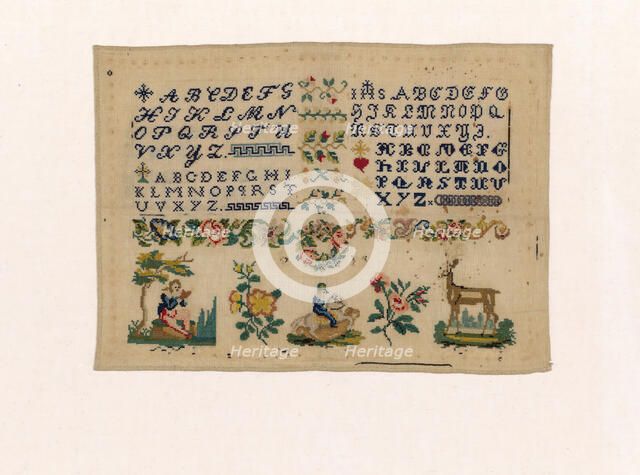 A B C D E F G
H I K L M N
O P Q R S T U
V X Y Z.
A B C D E F G H I
K L M N O P I R S T
U V X Y Z.
A B C D E F G
H I K L M N O P Q
R S T U V X Y Z.
A B C D E F G
H I K L M N O
P Q R S T U V
X Y Z
Heritage
Heritage
Heritage
Heritage
Heritage
Heritage